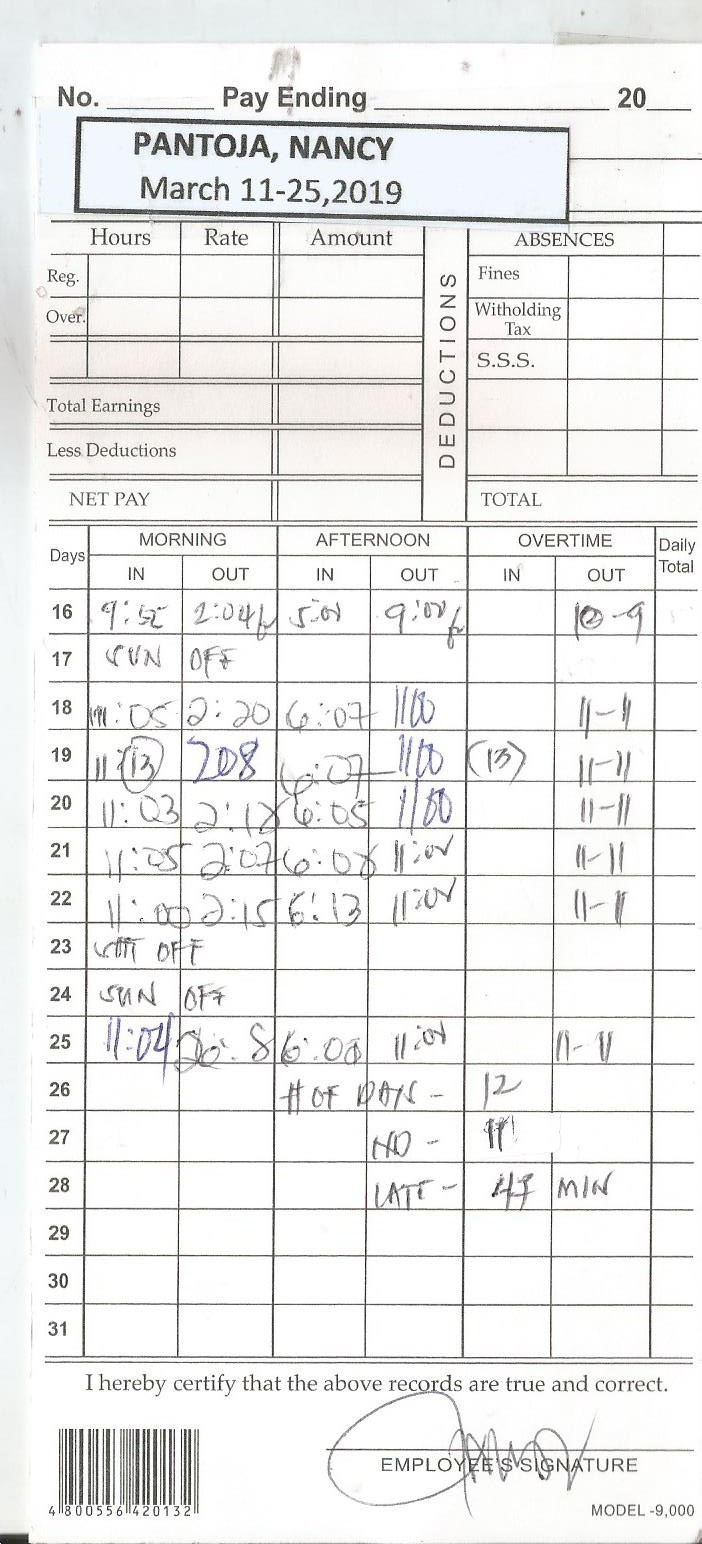 No. Pay Ending 20
PANTOJA, NANCY
March 11-25,2019
Hours Rate Amount DEDUCTIONS ABSENCES
Reg. Fines
Over. Witholding Tax
S.S.S.
Total Earnings
Less Deductions
NET PAY TOTAL
Days MORNING AFTERNOON OVERTIME Daily Total
IN OUT IN OUT IN OUT
16 2:04 10-9
17 SUN OFF
18 :05 2:20 6:07 1100 11-11
19 11:13 208 6:07 1100 (13) 11-11
20 11:03 2:18 6:05 1100 11-11
21 11:05 2:07 6:08 11:00 11-11
22 11:00 2:15 6:13 11:00 11-11
23 OFF
24 SUN OFF
25 11:04 11:00 11-11
26 # OF DAYS - 12
27 ND - 11
28 LATE - 47 MIN
29
30
31
I hereby certify that the above records are true and correct.
EMPLOYEE'S SIGNATURE
4 800556 420132
MODEL -9,000